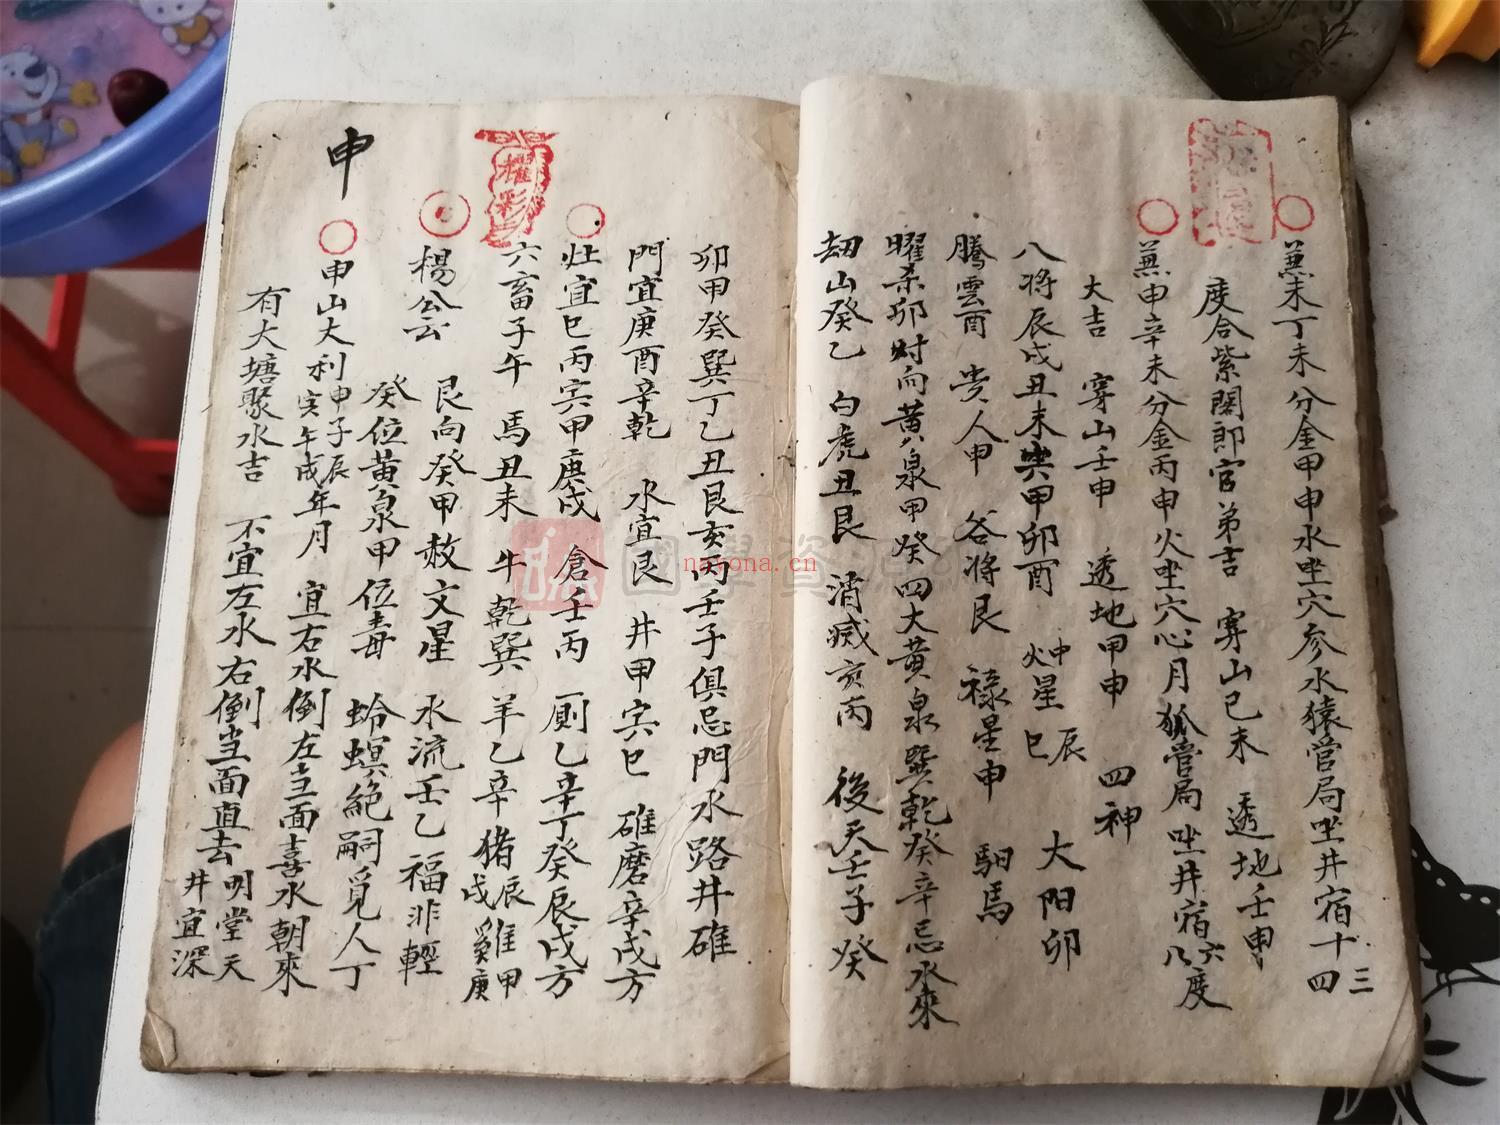 蕪未丁未分金甲申水坐穴参水猿管局坐井宿十三四
度合紫闕郎官弟吉 穿山己未 透地壬申
蕪申辛未分金丙申火坐穴心月狐管局坐井宿六八度
大吉 穿山壬申 透地甲申 四神
八将辰戌丑未與甲卯酉 沖星辰巳 大阳卯
騰雲酉 贵人甲 谷将艮 禄星申 駟馬
曜杀卯 时向黄泉甲癸四大黄泉巽乾癸辛忌水來
劫山癸乙 白虎丑艮 消滅亥丙 後天壬子癸
卯甲癸巽丁乙丑艮亥丙壬子俱忌門水路井碓
門宜庚酉辛乾 水宜艮 井甲宾巳 碓磨辛戌方
灶宜巳丙宾甲庚戌 倉壬丙 厠乙辛丁癸辰戌方
六畜子午 馬丑未 牛乾巽 羊乙辛 猪辰戌 雞甲庚
楊公云 艮向癸甲赦文星 水流壬乙福非輕
癸位黄泉甲位毒 蛉螟絶嗣覓人丁
申
申山大利申子辰寅午戌年月 宜右水倒左主面喜水朝來
有大塘聚水吉 不宜左水右倒当面直去 明堂天井宜深
國學資源
nayona.cn